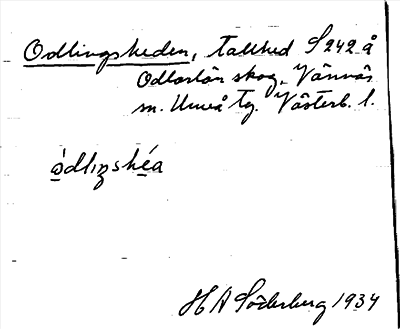 Odlingsheden, tallhed S242 å
Odlarlån skog. Vännäs
sn. Umeå tg. Västerb. l.
òdlıŋshéa
H A Söderberg 1934